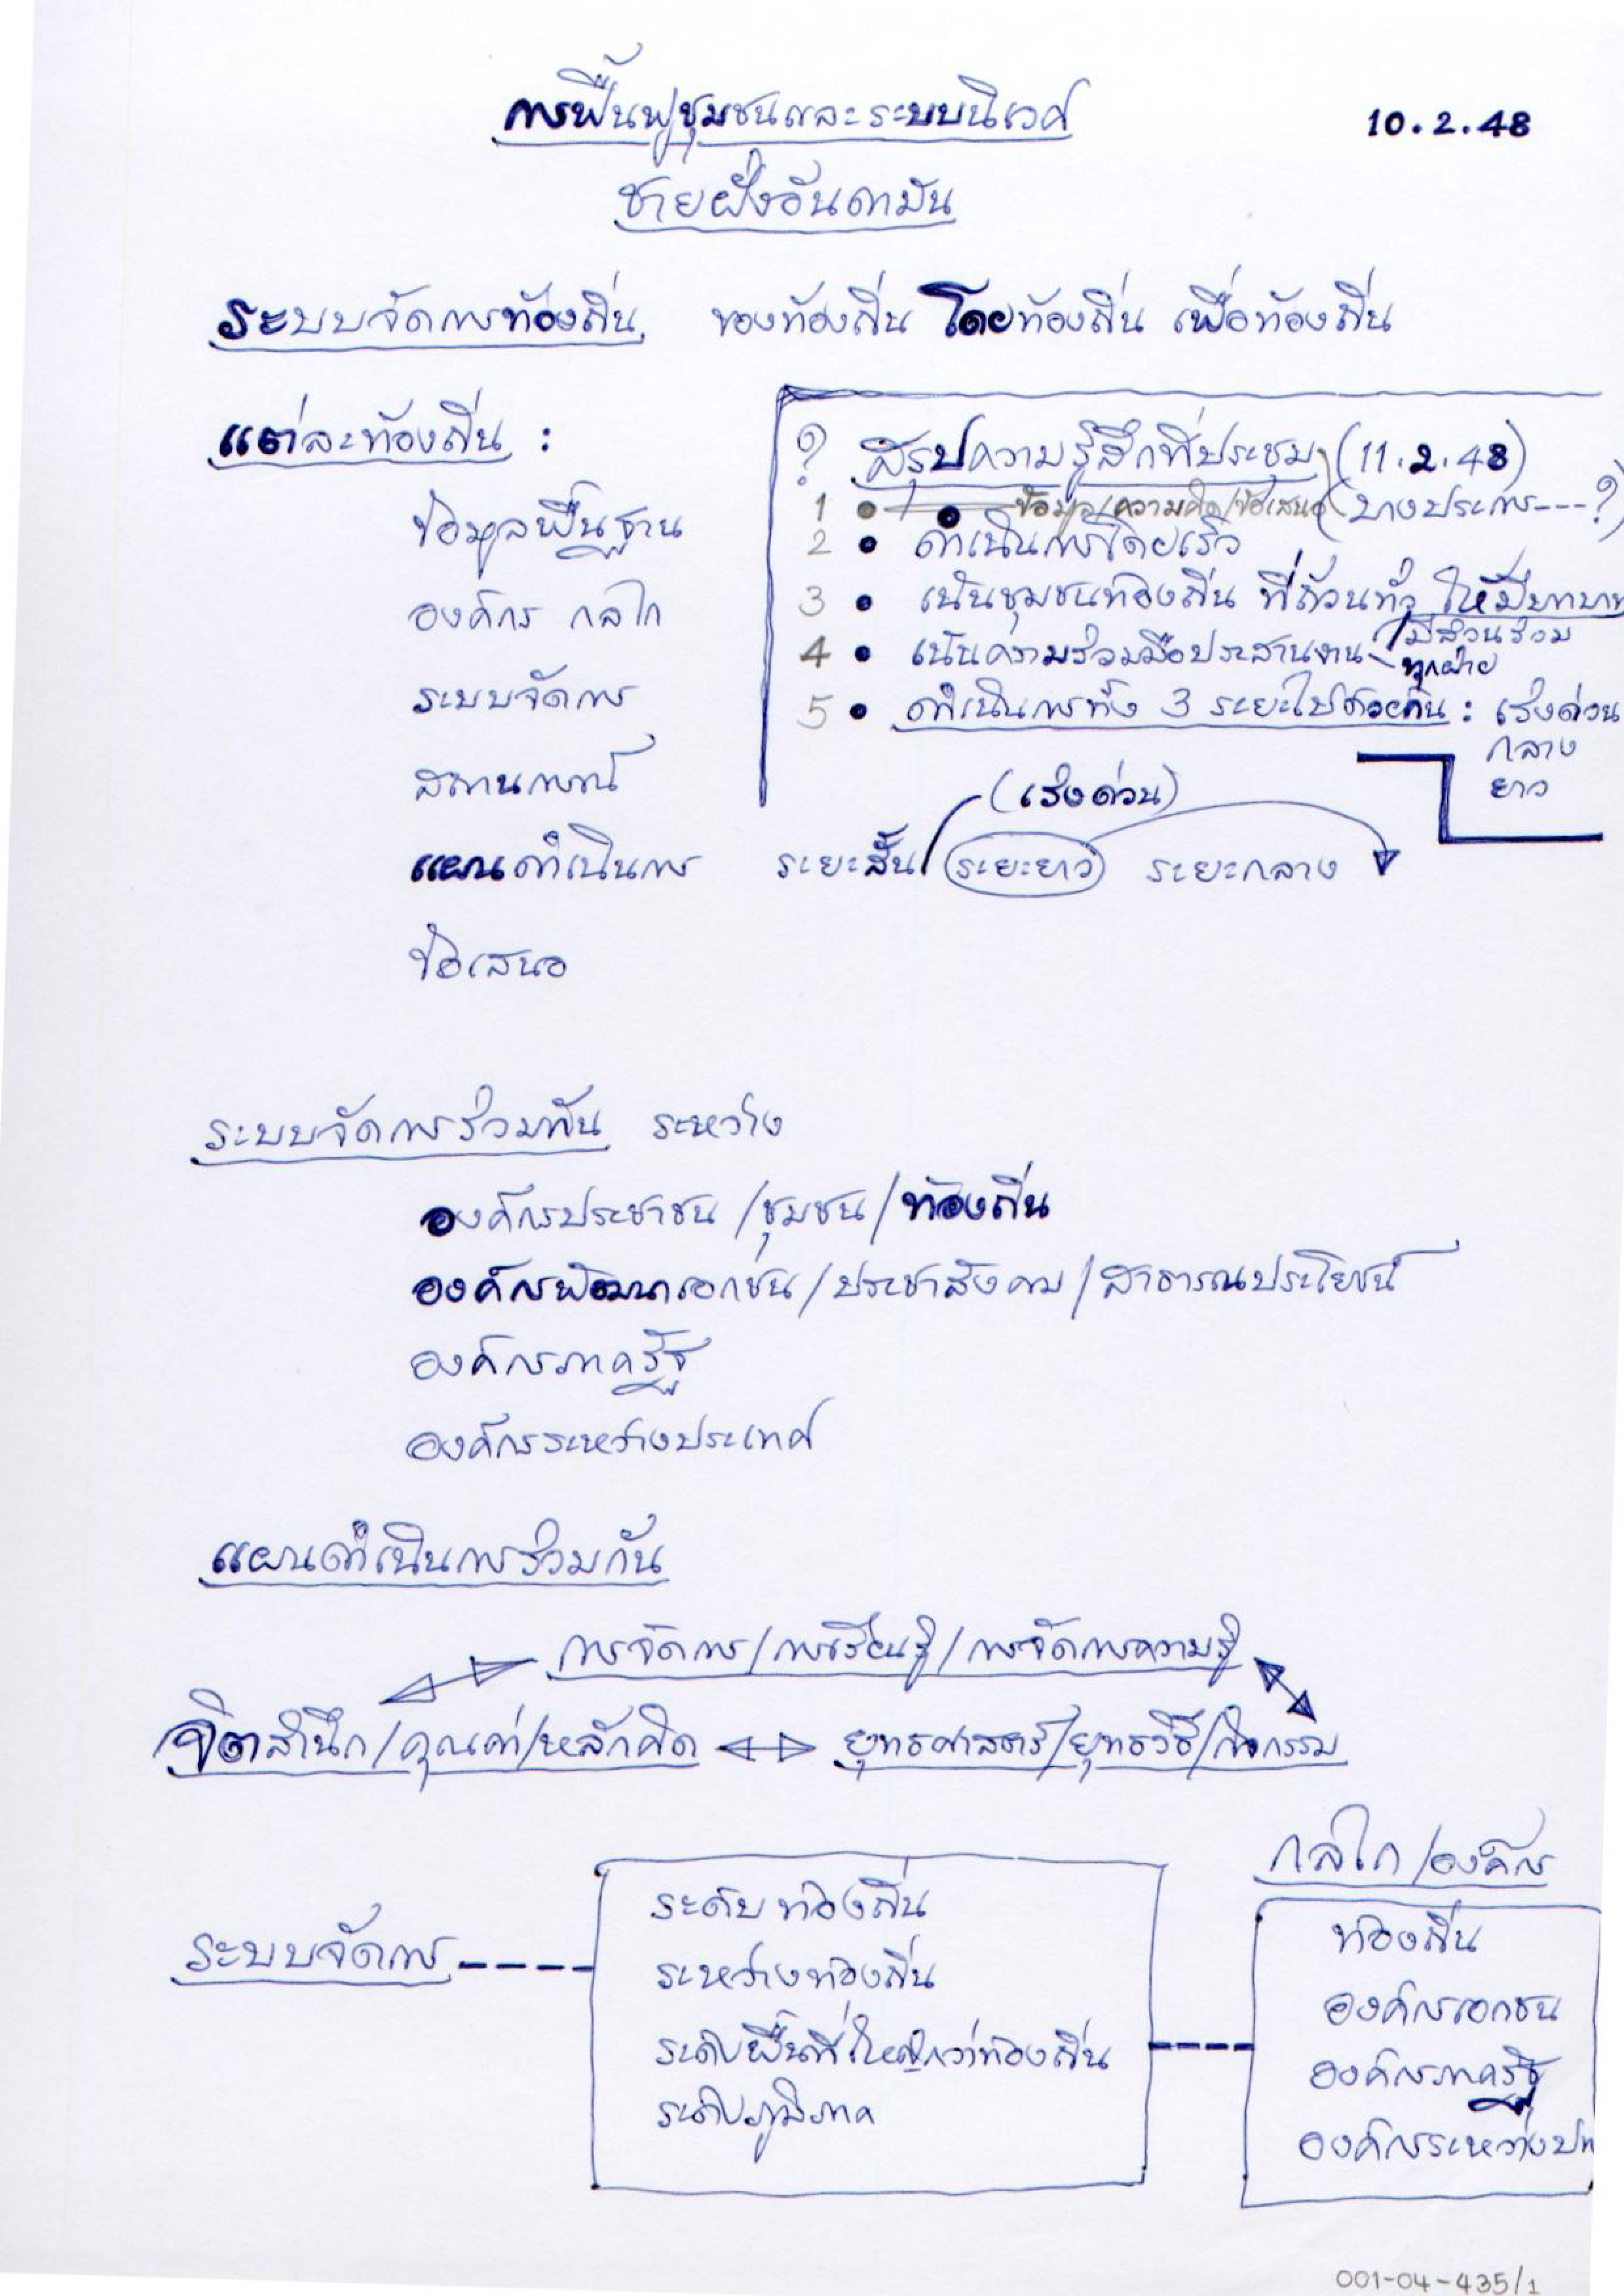 การฟื้นฟูชุมชนและระบบนิเวศ
10.2.48
ชายฝั่งอันดามัน
ระบบจัดการท้องถิ่น ของท้องถิ่น โดยท้องถิ่น เพื่อท้องถิ่น
แต่ละท้องถิ่น :
ข้อมูลพื้นฐาน
องค์กร กลไก
ระบบจัดการ
สถานการณ์
แผนดำเนินการ ระยะสั้น (เร่งด่วน) ระยะยาว ระยะกลาง
ข้อเสนอ
? สรุปความรู้สึกที่ประชุม (11.2.48)
1 • ข้อมูล/ความคิด/ข้อเสนอ (บางประการ---?)
2 • ดำเนินการโดยเร็ว
3 • เน้นชุมชนท้องถิ่น ที่ถ้วนทั่ว ให้มีบทบาท
/มีส่วนร่วม
4 • เน้นความร่วมมือประสานงาน - ทุกฝ่าย
5 • ดำเนินการทั้ง 3 ระยะไปด้วยกัน : เร่งด่วน
กลาง
ยาว
ระบบจัดการร่วมกัน ระหว่าง
องค์กรประชาชน/ชุมชน/ท้องถิ่น
องค์กรพัฒนาเอกชน/ประชาสังคม/สาธารณประโยชน์
องค์กรภาครัฐ
องค์กรระหว่างประเทศ
แผนดำเนินการร่วมกัน
การจัดการ/การเรียนรู้/การจัดการความรู้
จิตสำนึก/คุณค่า/หลักคิด ยุทธศาสตร์/ยุทธวิธี/กิจกรรม
ระบบจัดการ
ระดับท้องถิ่น
ระหว่างท้องถิ่น
ระดับพื้นที่ใหญ่กว่าท้องถิ่น
ระดับภูมิภาค
กลไก/องค์กร
ท้องถิ่น
องค์กรเอกชน
องค์กรภาครัฐ
องค์กรระหว่างปท
001-04-435/1